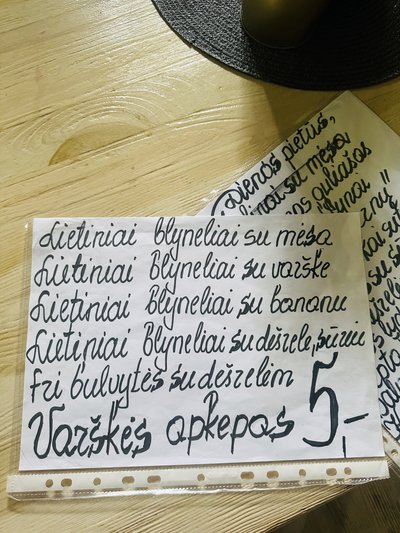 Lietiniai blyneliai su mėsa
Lietiniai blyneliai su varške
Lietiniai blyneliai su bananu
Lietiniai blyneliai su dešrele, sūreiu
Fri bulvytės su dešrelėm
Varškės apkepas 5,-
Dienos pietūs,
su mėsa
guliašas